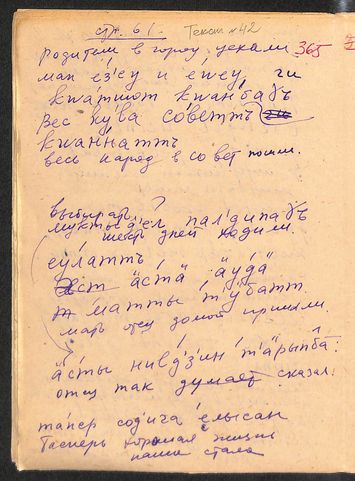 стр. 61. Текст №42
родители в город уехали. 365
ман ёз'ёу и ёжёу, чи
кwáтшот кwанба̄дъ
Вес кýва совéттъ
кwаннáттъ
весь народ в совет пошли.
выбирать?
муктыдёл палдипадъ
шесть дней ходили.
еýлаттъ
äстä äýдä
мáтты тýбатт
мать отец домой пришли.
äсты нивдзин тäрыпба:
отец так думает сказал:
тапер содича ёлысан
Теперь хорошая жизнь
наша стала